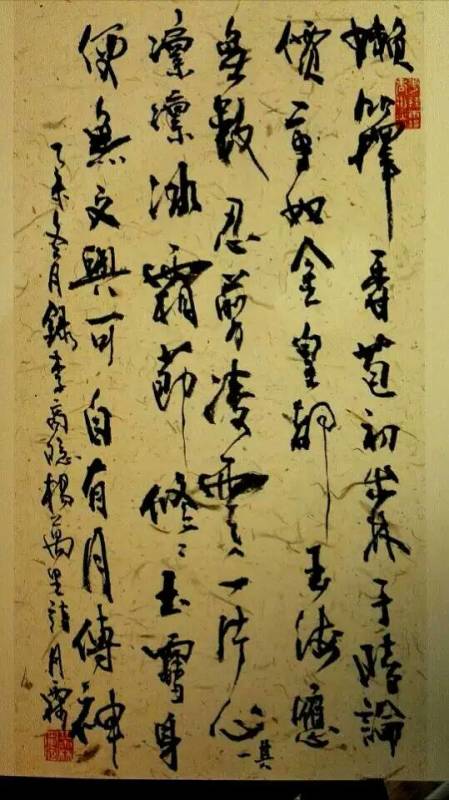 嫩籜香苞初出林于陵論
價重如金皇都海應
無數忍剪凌雲一片心其一
凜凜冰霜節修〻玉雪身
便無文與可自有月傳神
乙未冬月錄李商隱楊萬里詩月霖